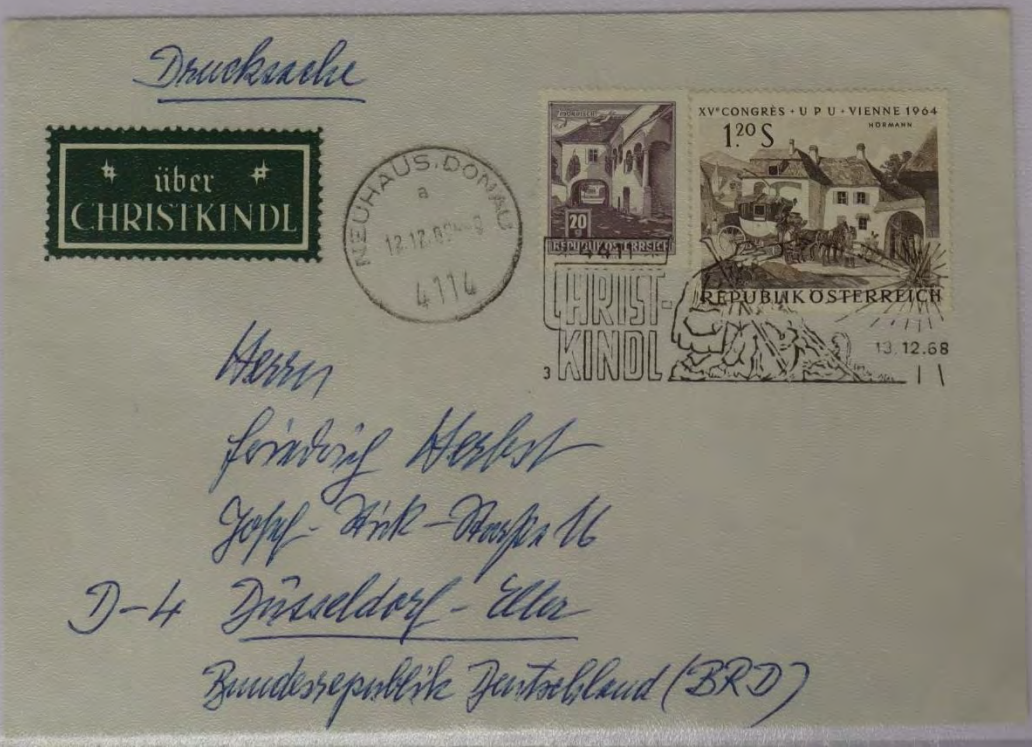 Drucksache
über
CHRISTKINDL
NEUHAUS.DONAU
a
12.12.68
4114
20
REPUBLIK ÖSTERREICH
XVᵉ CONGRÈS · UPU · VIENNE 1964
NÖRMANN
1.20 S
REPUBLIK ÖSTERREICH
4411
CHRIST-
KINDL
3
13.12.68
Herrn
Friedrich Herbst
Josef-
Straße 16
D-4 Düsseldorf-Eller
Bundesrepublik Deutschland (BRD)